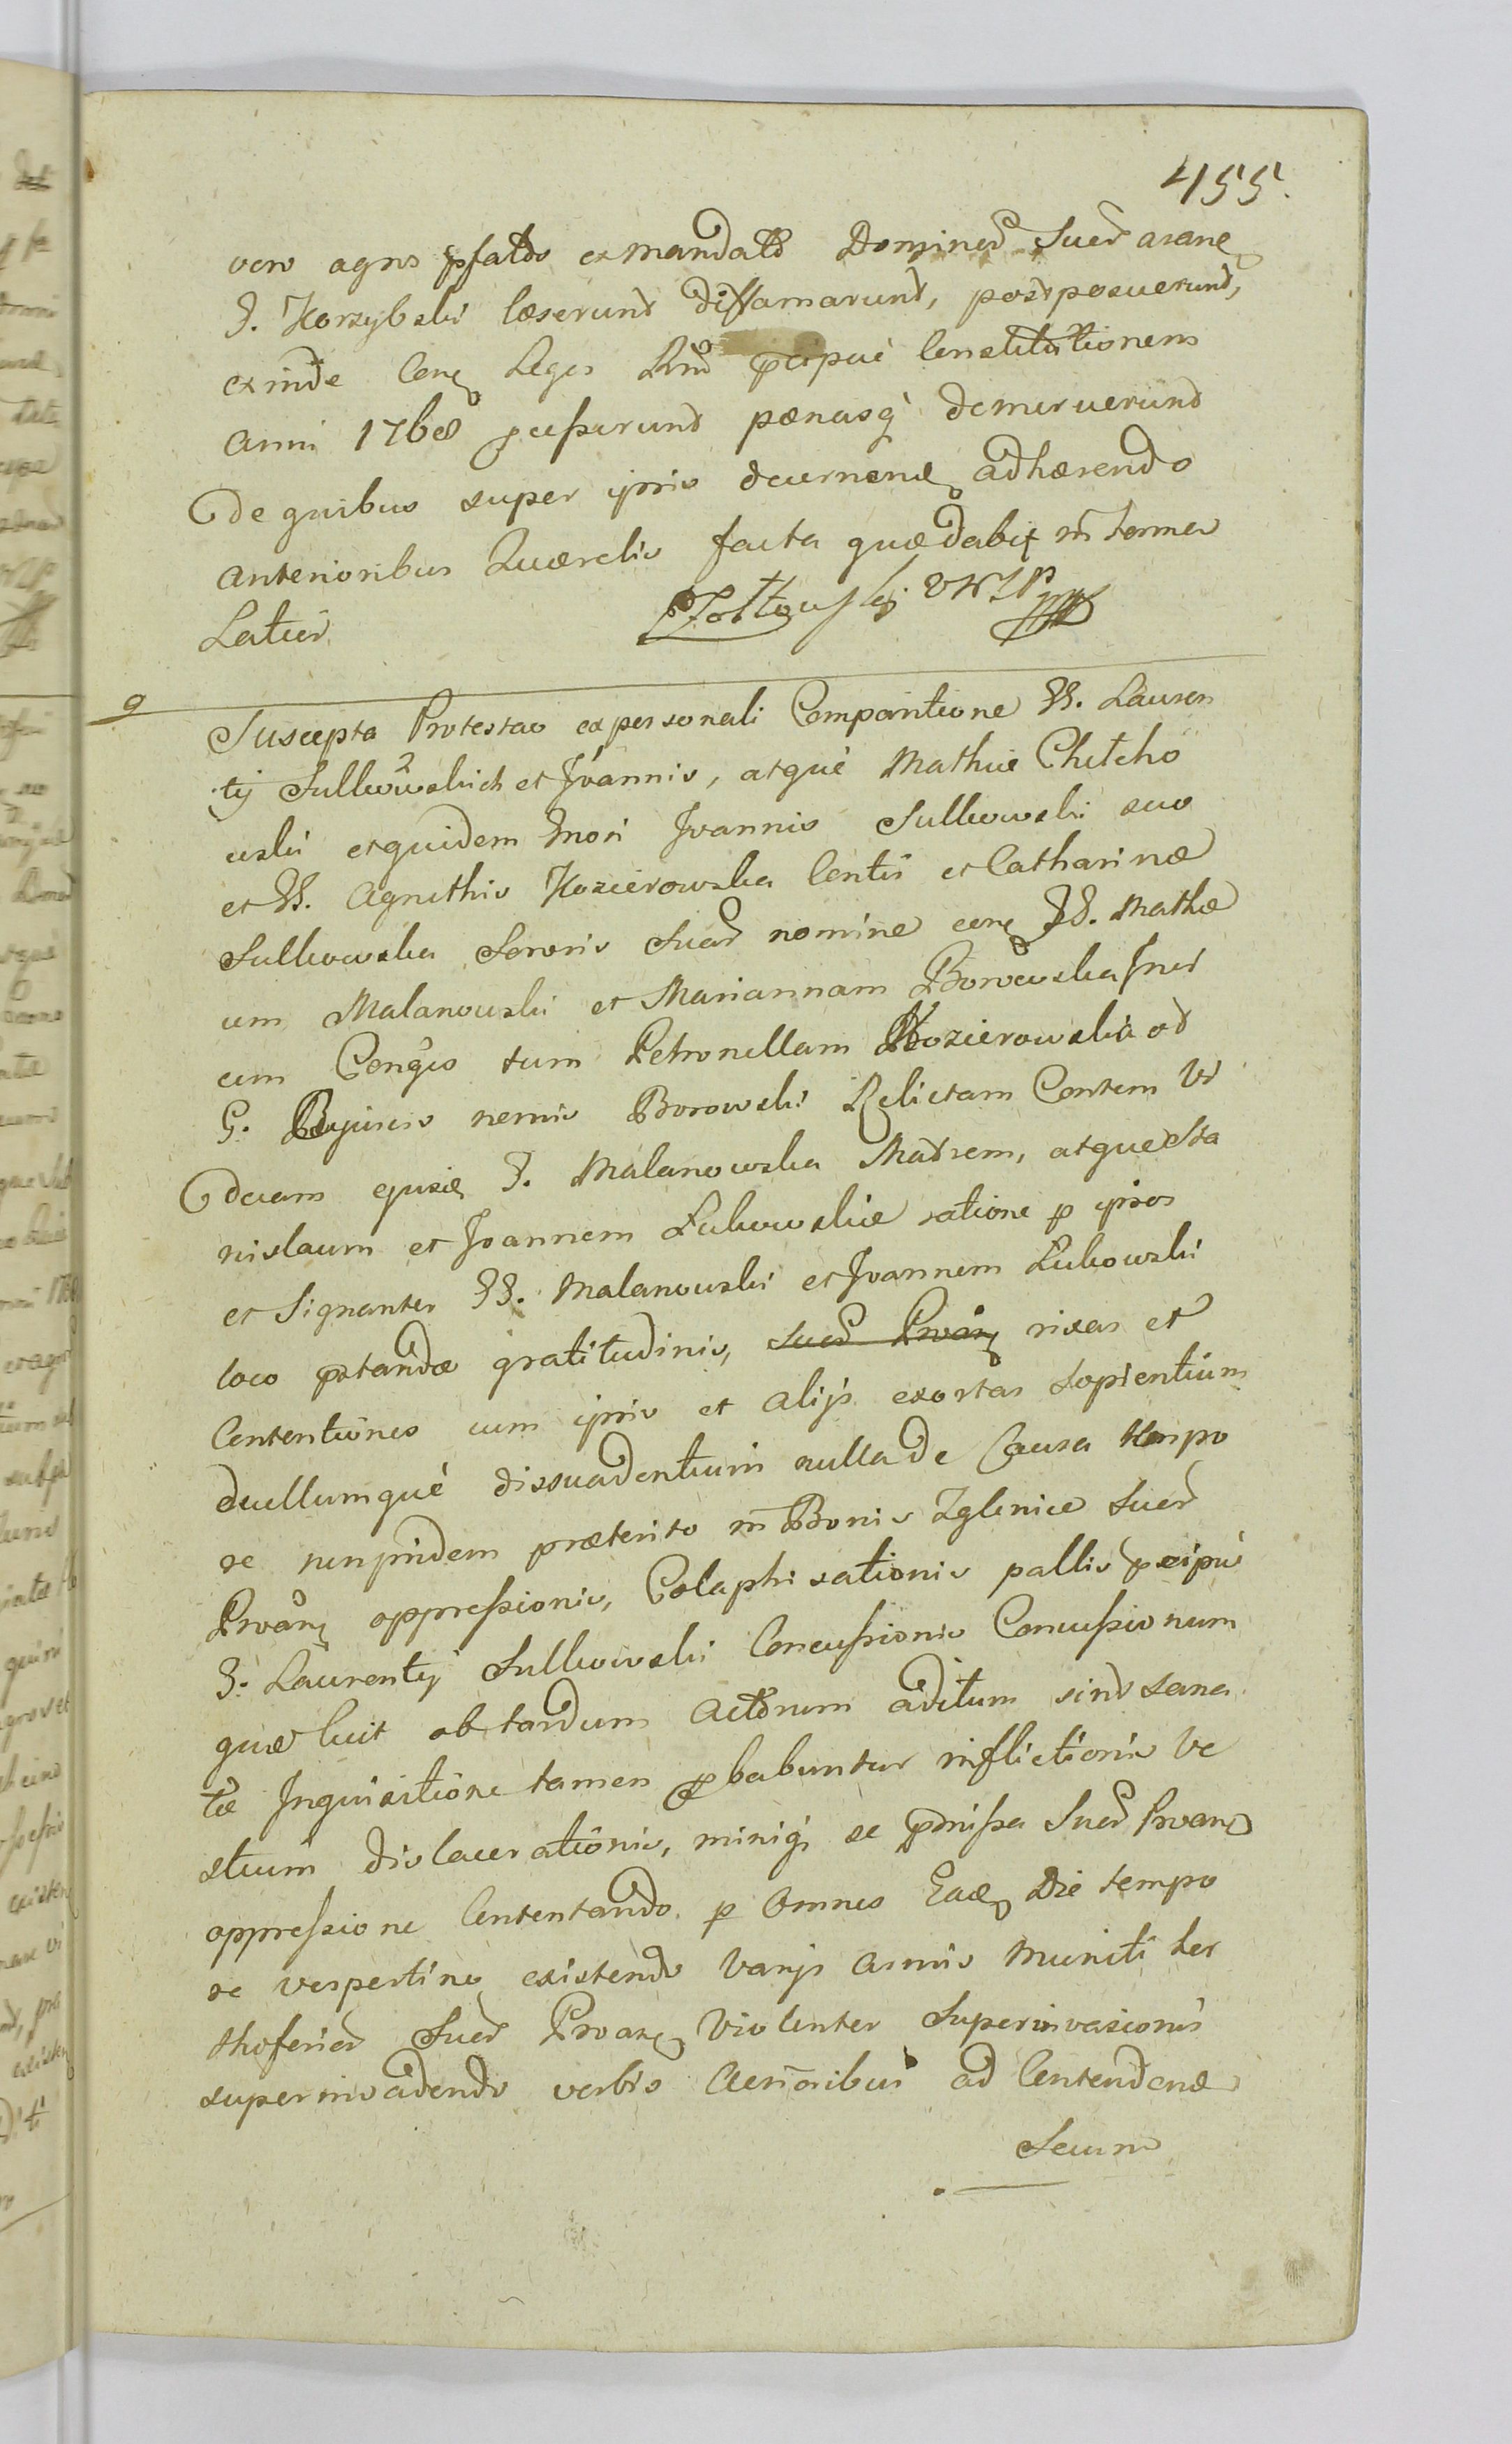 455.
vero agros pfatos ex mandato Dominor Suor arane
G. Korzybski læserunt diffamarunt, postposuerunt,
exinde Conq Leges Rnd præcipuè Constitutionem
Anni 1768 peccarunt pænasq demeruerunt
de quibus super ipsis decernend adhærendo
anterioribus Quærelis facta quædabit in terme
Latur.
Suscepta Protestao ex personali Comparitione GG. Lauren
tij Sulkowskich et Joannis, atquè Mathiæ Chełcho
wski et quidem Gnosi Joannis Sulkowski suo
et GG. Agnethis Kozierowska Contis et Catharinæ
Sulkowska Sororis Suar nomine conq GG. Mathæ
um Malanowski et Mariannam Borowska Iner
cem Conges tum Petronellam Kozierowska od
G. nemis Borowski Relictam Contem Vi
duam ejusq G. Malanowska Matrem, atque Sta
nislaum et Joannem Łukowskie ratione p ipsos
et Signanter GG. Malanowski et Joannem Łukowski
loco pstandæ gratitudinis, rixas et
Contentiones cum ipsis et alijs exortas sopientium
duellumquè dissuadentium nulla de Causa tempo
re nunpridem præterito in Bonis Zglinice Suor
Prванq oppressionis, Colaphisationis pallis præcipuè
G. Laurentij Sulkowski Concussionis Concussionum
quæ licet ob tardum Actorum aditum sint sana
tæ Inquisitione tamen pbabuntur inflictionis Ve
stium dislacerationis, minisq se pmissa Suor
oppressione Contentando p Omnes Eadq Die tempo
re vespertino existendo Varijs armis muniti
Suor Violenter Superinvasionis
superinvadendo verbis Acrioribus ad Contendend
Secum